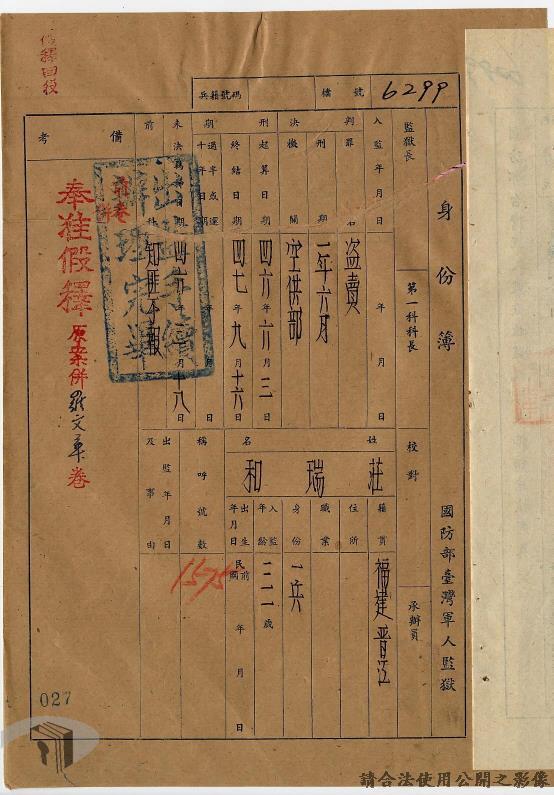 身份簿
國防部臺灣軍人監獄
兵籍號碼
檔號 6299
監獄長
第一科科長
校對
承辦員
入監年月日 年 月 日
判罪名 盜賣
刑期 一年六月
判決機關 空供部
刑起算日期 四六年六月三日
終結日期 四七年九月十六日
期過半或逾十年日期 年 月 日
前科 知匪不報
姓名 莊瑞和
籍貫 福建晉江
住所
職業
身份 一兵
入監年齡 二二一歲
出生年月日 民前國 年 月 日
稱呼號數 1575
出監年月日及事由
備考
奉准假釋
原案併羅文華卷
假釋回役
027
請合法使用公開之影像